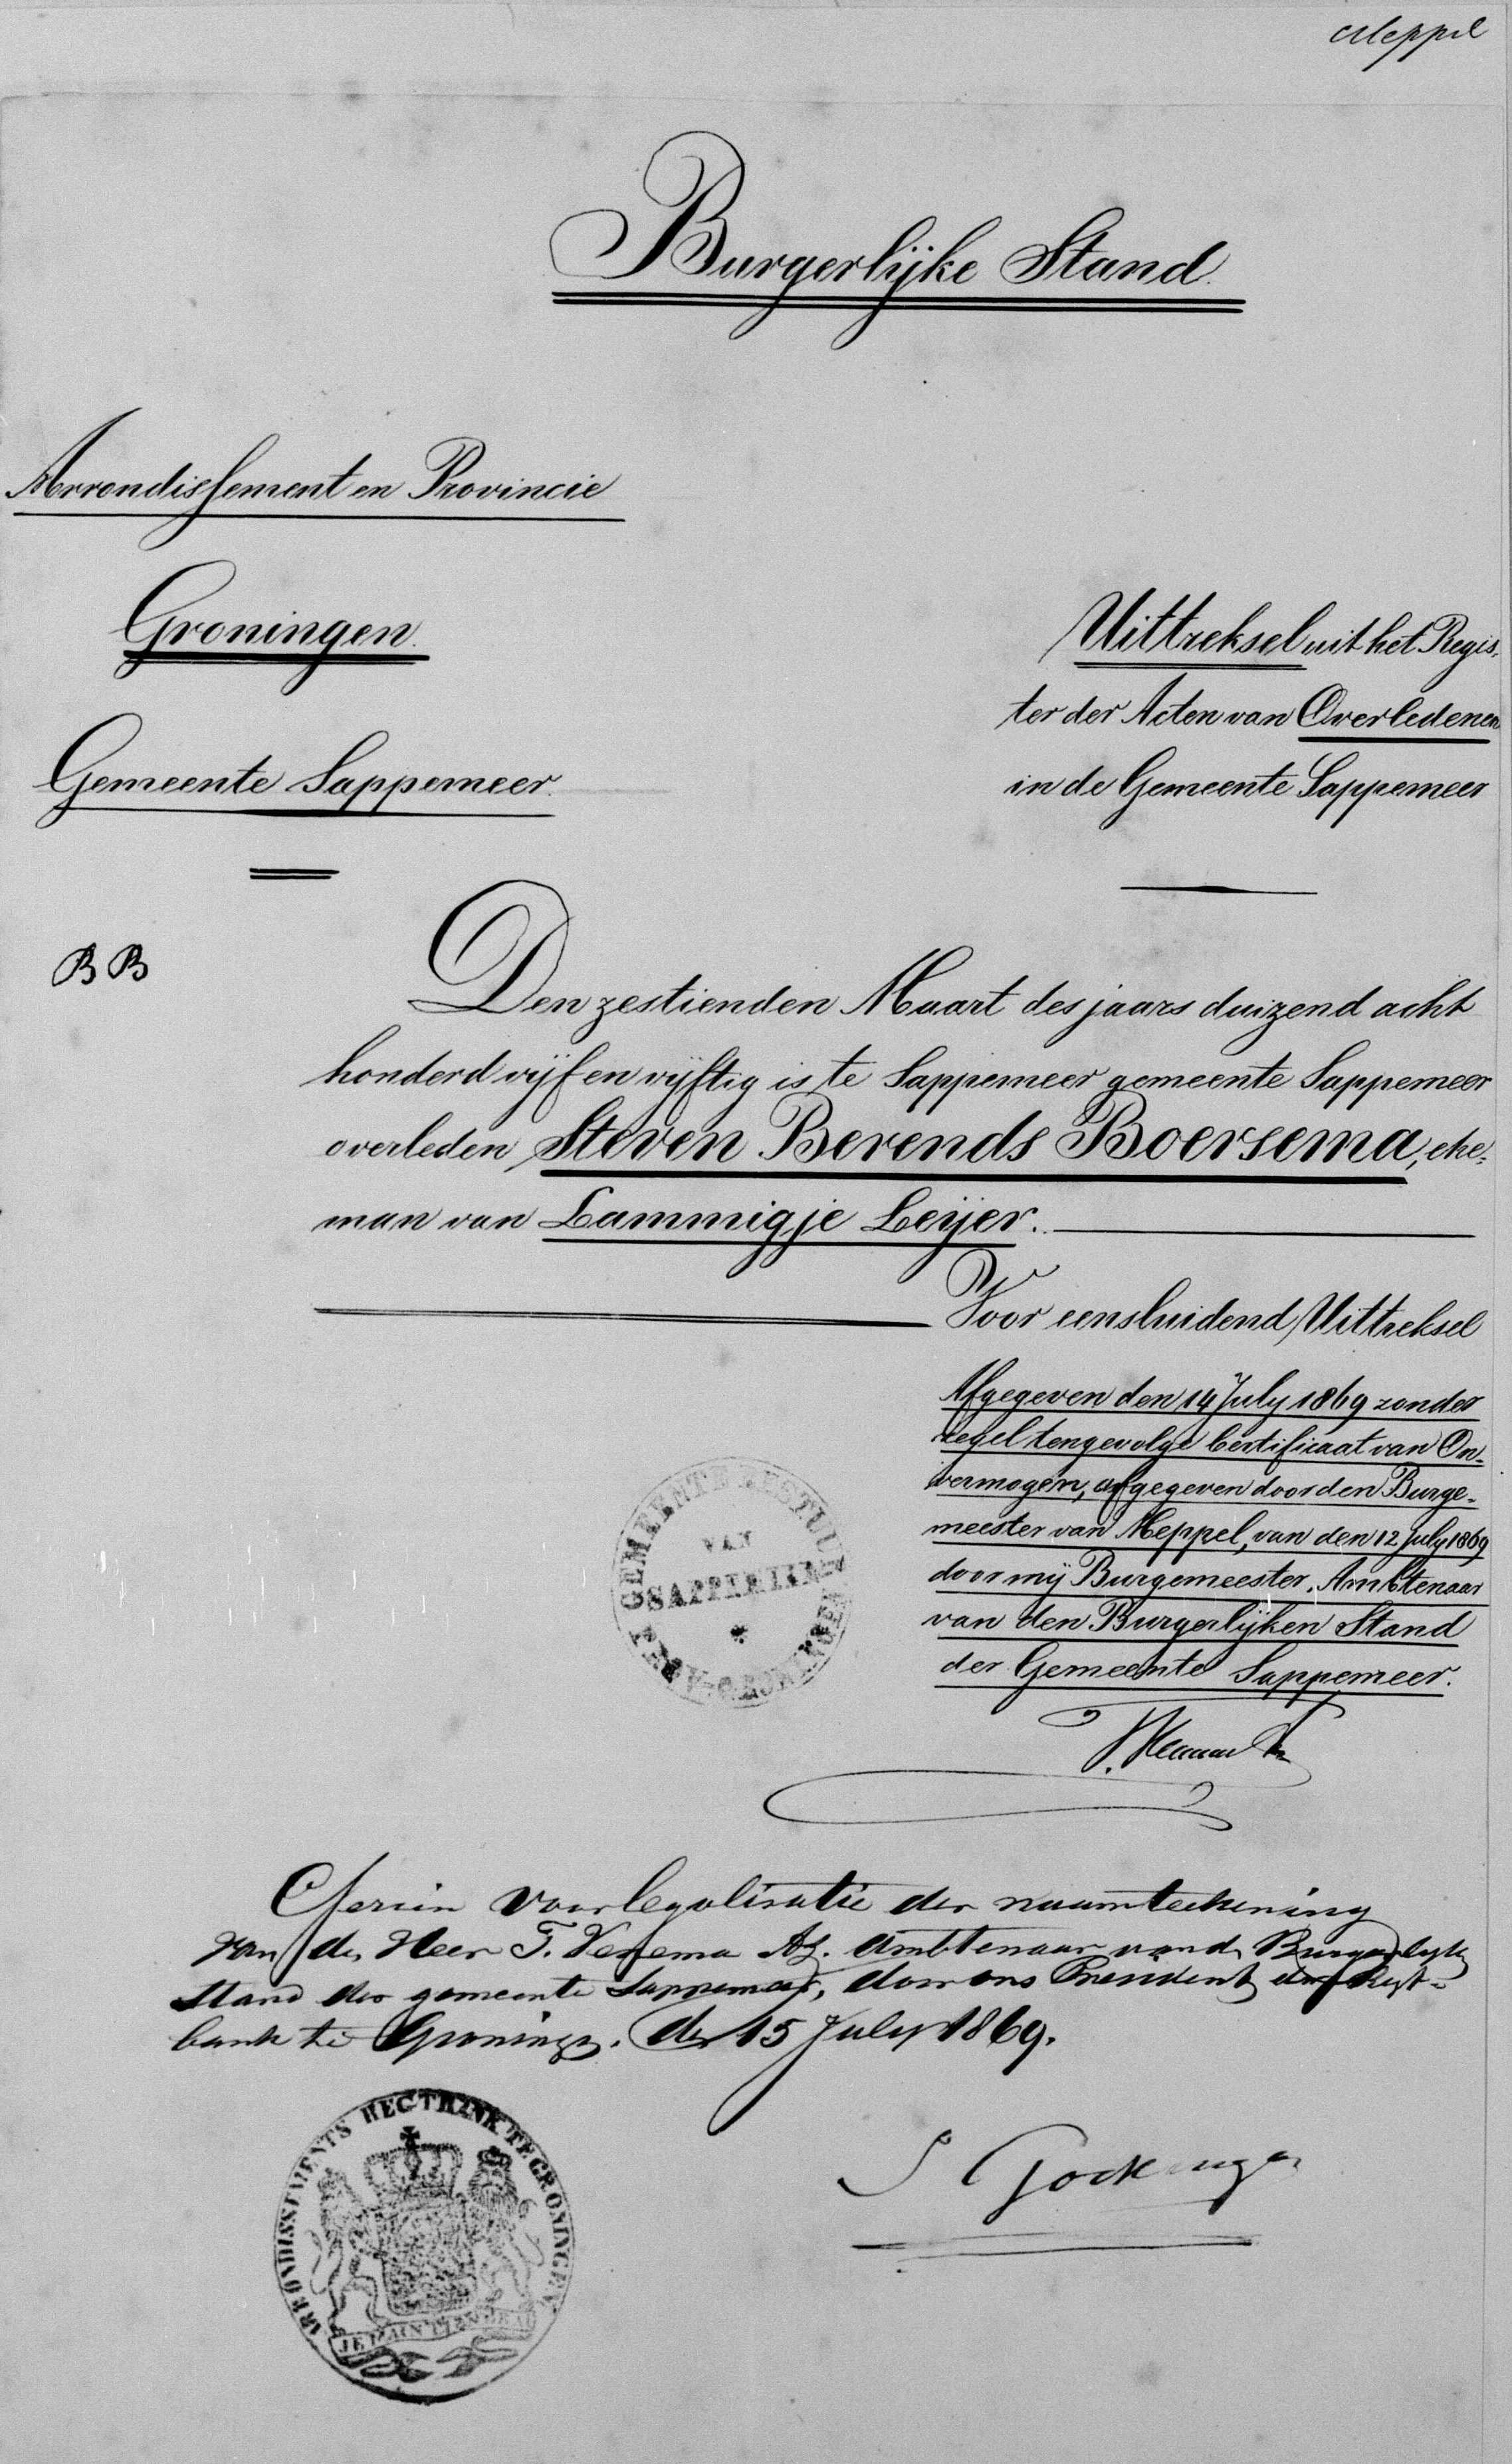 Meppel
Burgerlijke Stand.
Arrondissement en Provincie
Groningen.
Gemeente Sappemeer.
Uittreksel uit het Regis-
ter der Acten van Overledenen
in de Gemeente Sappemeer
BB
Den zestienden Maart des jaars duizend acht
honderd vijf en vijftig is te Sappemeer gemeente Sappemeer
overleden Steven Berends Boersema, ehe-
man van Lammigje Leijer.
Voor eensluidend Uittreksel
Afgegeven den 14 July 1869 zonder
zegel tengevolge Certificaat van On-
vermogen, afgegeven door den Burge-
meester van Meppel, van den 12 July 1869
door mij Burgemeester, Ambtenaar
van den Burgerlijken Stand
der Gemeente Sappemeer.
GEMEENTE BESTUUR
VAN
SAPPEMEER
PROV. GRONINGEN
voor legalisatie der naamteekening
van de Heer T. Venema Az. Ambtenaar van de Burgerlyke
Stand der gemeente Sappemeer, door ons President der Regt-
bank te Groningen. den 15 July 1869.
ARRONDISSEMENTS REGTBANK TE GRONINGEN
JE MAINTIENDRAI
S Gockinga